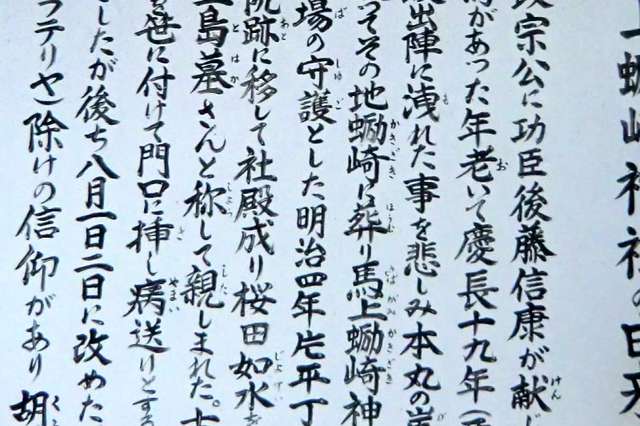 蛎崎神社の由来
政宗公に功臣後藤信康が献じ
があった年老いて慶長十九年(
出陣に洩れた事を悲しみ本丸の崖
ってその地蛎崎に葬り馬上蛎崎神
場の守護とした明治四年片平丁
院跡に移して社殿成り桜田如水
三島墓さんと称して親しまれた。
を笹に付けて門口に挿し病送りとする
したが後ち八月一日二日に改めた
ラテリヤ)除けの信仰があり胡